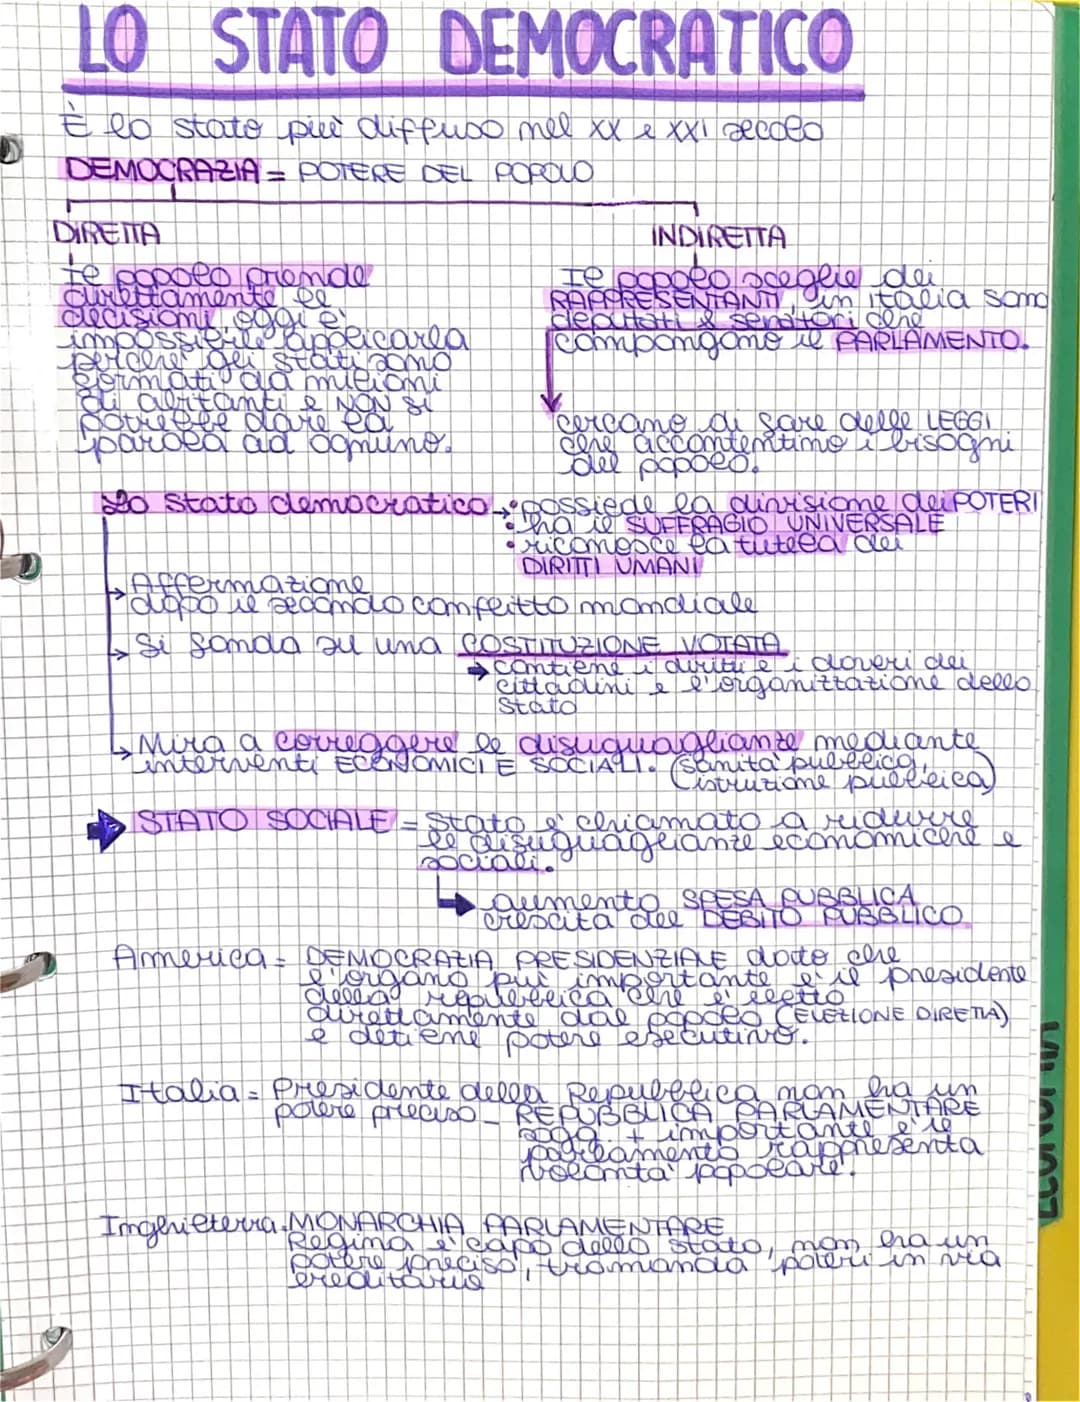 LO STATO DEMOCRATICO
È lo stato più diffuso nel XX e XXI secolo
DEMOCRAZIA = POTERE DEL POPOLO
DIRETTA
Il popolo prende
direttamente le
decisioni, oggi è
impossibile applicarla
perché gli stati sono
formati da milioni
di abitanti e NON si
potrebbe dare la
parola ad ognuno.
INDIRETTA
Il popolo sceglie dei
RAPPRESENTANTI, in italia sono
deputati e senatori che
compongono il PARLAMENTO.
cercano di fare delle LEGGI
che accontentino i bisogni
del popolo.
Lo Stato democratico → • possiede la divisione dei POTERI
• ha il SUFFRAGIO UNIVERSALE
• riconosce la tutela dei
DIRITTI UMANI
→ Affermazione
dopo il secondo conflitto mondiale
→ Si fonda su una COSTITUZIONE VOTATA
→ contiene i diritti e i doveri dei
cittadini e l'organizzazione dello
Stato
→ Mira a correggere le disuguaglianze mediante
interventi ECONOMICI E SOCIALI. (sanità pubblica,
istruzione pubblica)
→ STATO SOCIALE = Stato è chiamato a ridurre
le disuguaglianze economiche e
sociali.
→ aumento SPESA PUBBLICA
crescita del DEBITO PUBBLICO
America = DEMOCRAZIA PRESIDENZIALE dato che
l'organo più importante è il presidente
della repubblica che è eletto
direttamente dal popolo (ELEZIONE DIRETTA)
e detiene potere esecutivo.
Italia = Presidente della Repubblica non ha un
potere preciso - REPUBBLICA PARLAMENTARE
sogg. + importante è il
parlamento rappresenta
volontà popolare.
Inghilterra. MONARCHIA PARLAMENTARE
Regina è capo dello stato, non ha un
potere preciso, tramanda poteri in via
ereditaria